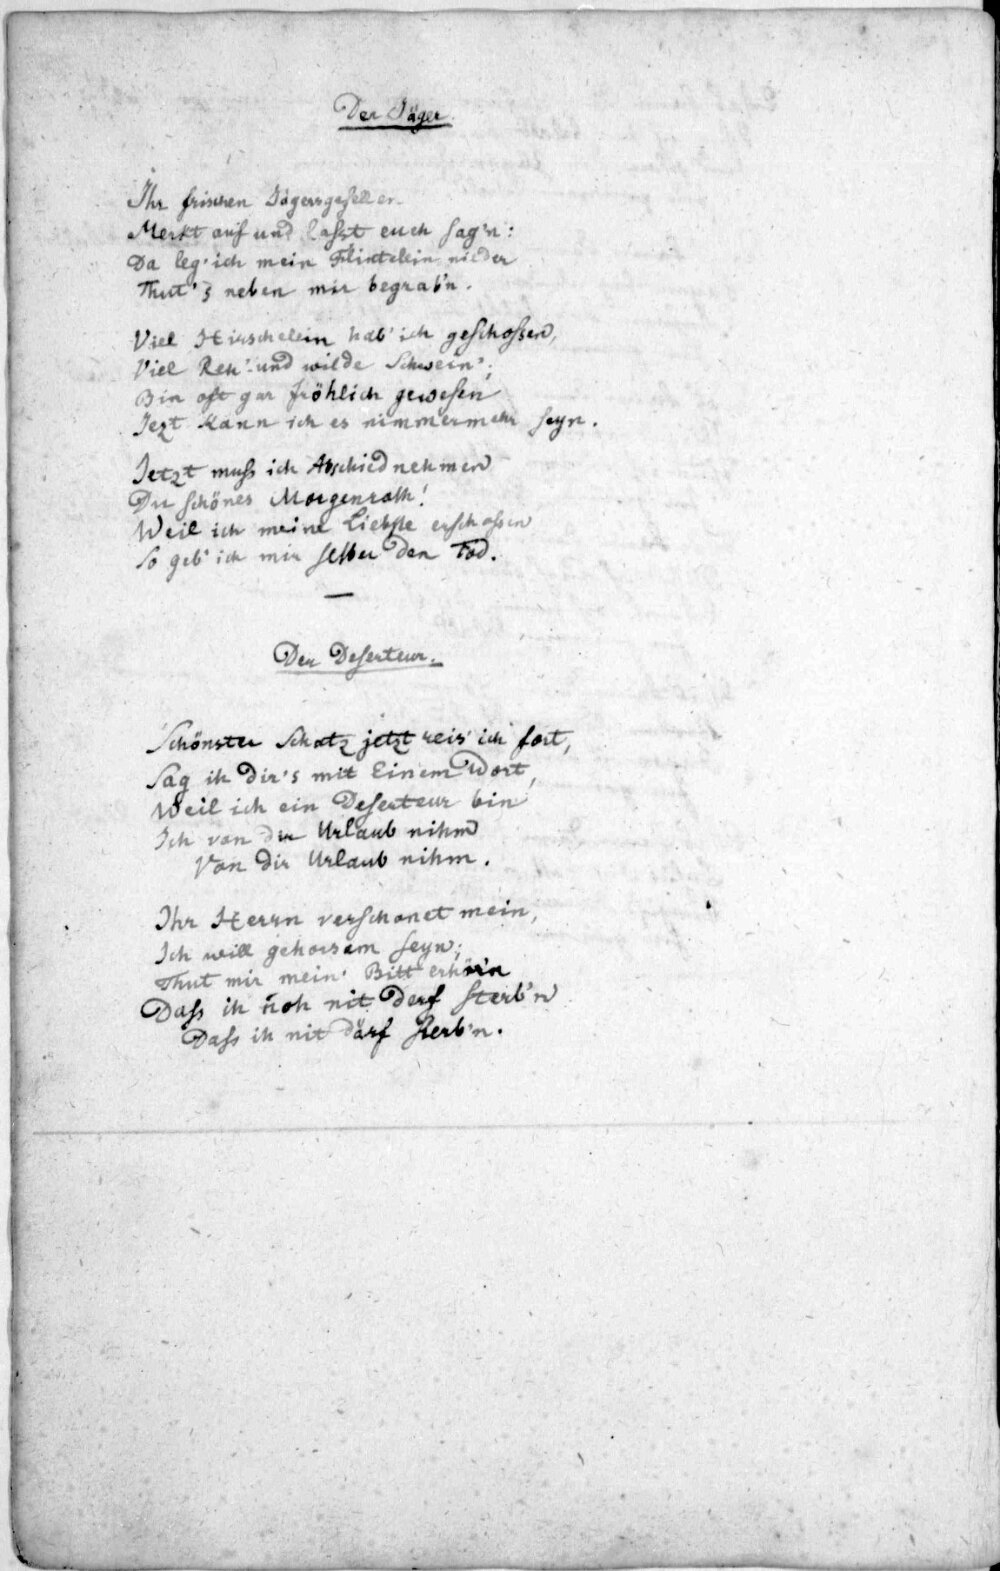 Der Jäger.
Ihr frischen Jägersgesellen
Merkt auf und lasst euch sag'n:
Da leg' ich mein Flintelein nieder
Thut's neben mir begrab'n.
Viel Hirschelein hab' ich geschossen,
Viel Reh' und wilde Schwein';
Bin oft gar fröhlich gewesen
Jezt kann ich es nimmermehr seyn.
Jetzt muss ich Abschied nehmen
Du schönes Morgenroth!
Weil ich meine Liebste erschossen
So geb' ich mir selber den Tod.
—
Der Deserteur.
Schönster Schatz jetzt reis' ich fort,
Sag ih dir's mit Einem Wort,
Weil ich ein Deserteur bin
Ich von dir Urlaub nihm
Von dir Urlaub nihm.
Ihr Herrn verschonet mein,
Ich will gehorsam seyn;
Thut mir mein' Bitt erhör'n
Dass ih noh nit derf sterb'n
Dass ih nit därf sterb'n.